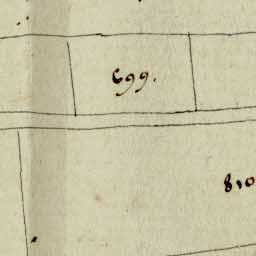 699.
810